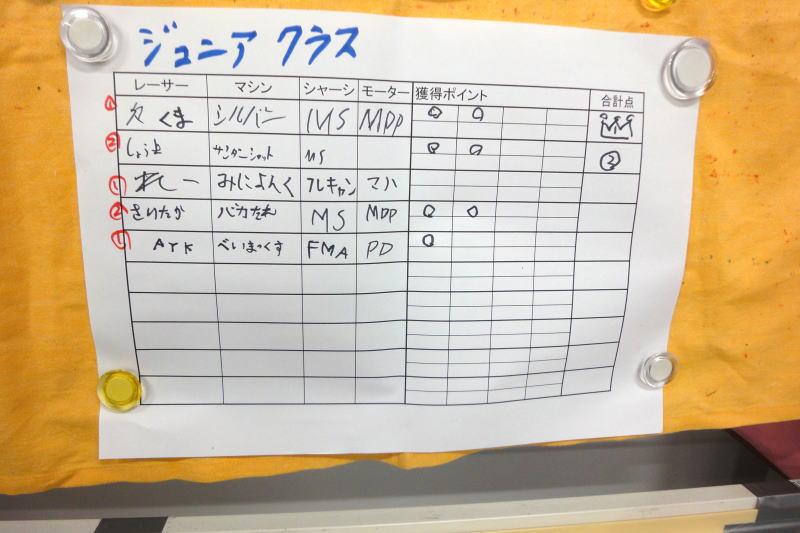 ジュニア クラス
レーサー マシン シャーシ モーター 獲得ポイント 合計点
① くま シルバー MS MDP
② しょうま サンダーショット MS ③
① れしー みによんく フレキャン マハ
② きいたか バカたれ MS MDP
① AYK べいまっくす FMA PD